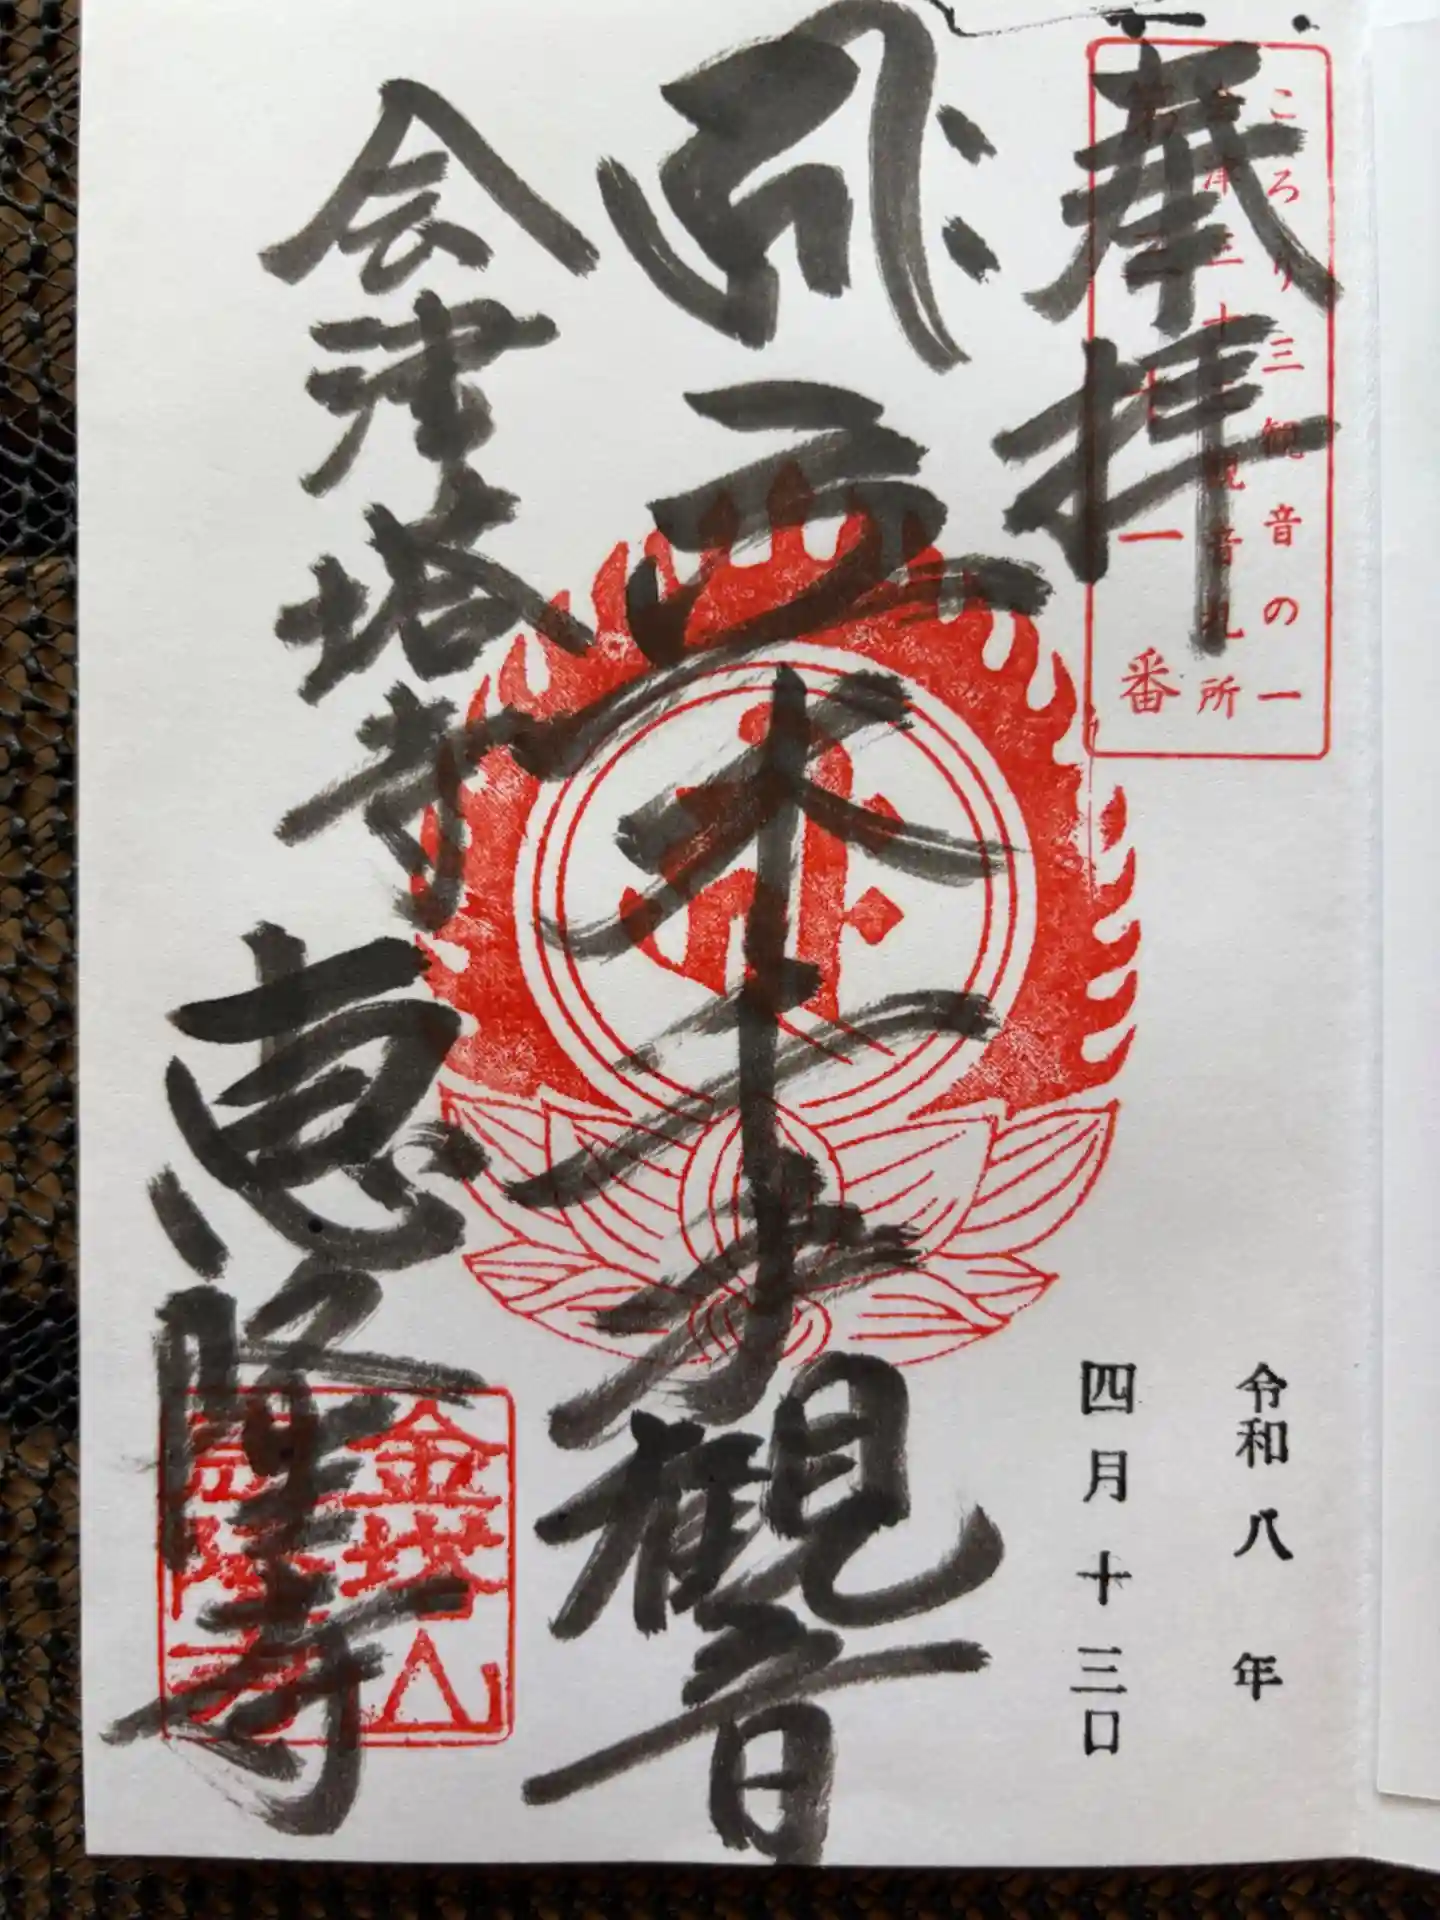 奉拝
ころり三観音の一
会津三十三観音札所
第三十一番
令和八年
四月十三日
立木千手観音
会津塔寺
恵隆寺
金塔山
恵隆寺